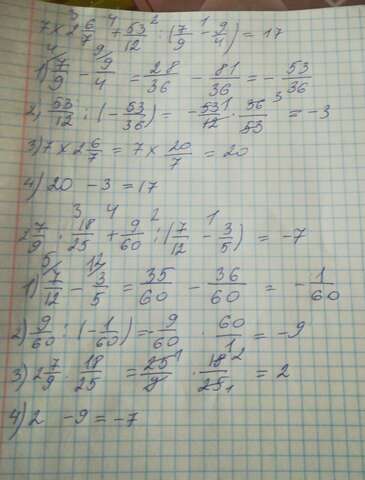 7 × 2 6/7 + 53/12 : (7/9 - 9/4) = 17
1) 7/9 - 9/4 = 28/36 - 81/36 = - 53/36
2) 53/12 : (- 53/36) = - 53/12 · 36/53 = -3
3) 7 × 2 6/7 = 7 × 20/7 = 20
4) 20 - 3 = 17
2 7/9 · 18/25 + 9/60 : (7/12 - 3/5) = -7
1) 7/12 - 3/5 = 35/60 - 36/60 = - 1/60
2) 9/60 : (- 1/60) = - 9/60 · 60/1 = -9
3) 2 7/9 · 18/25 = 25/9 · 18/25 = 2
4) 2 - 9 = -7